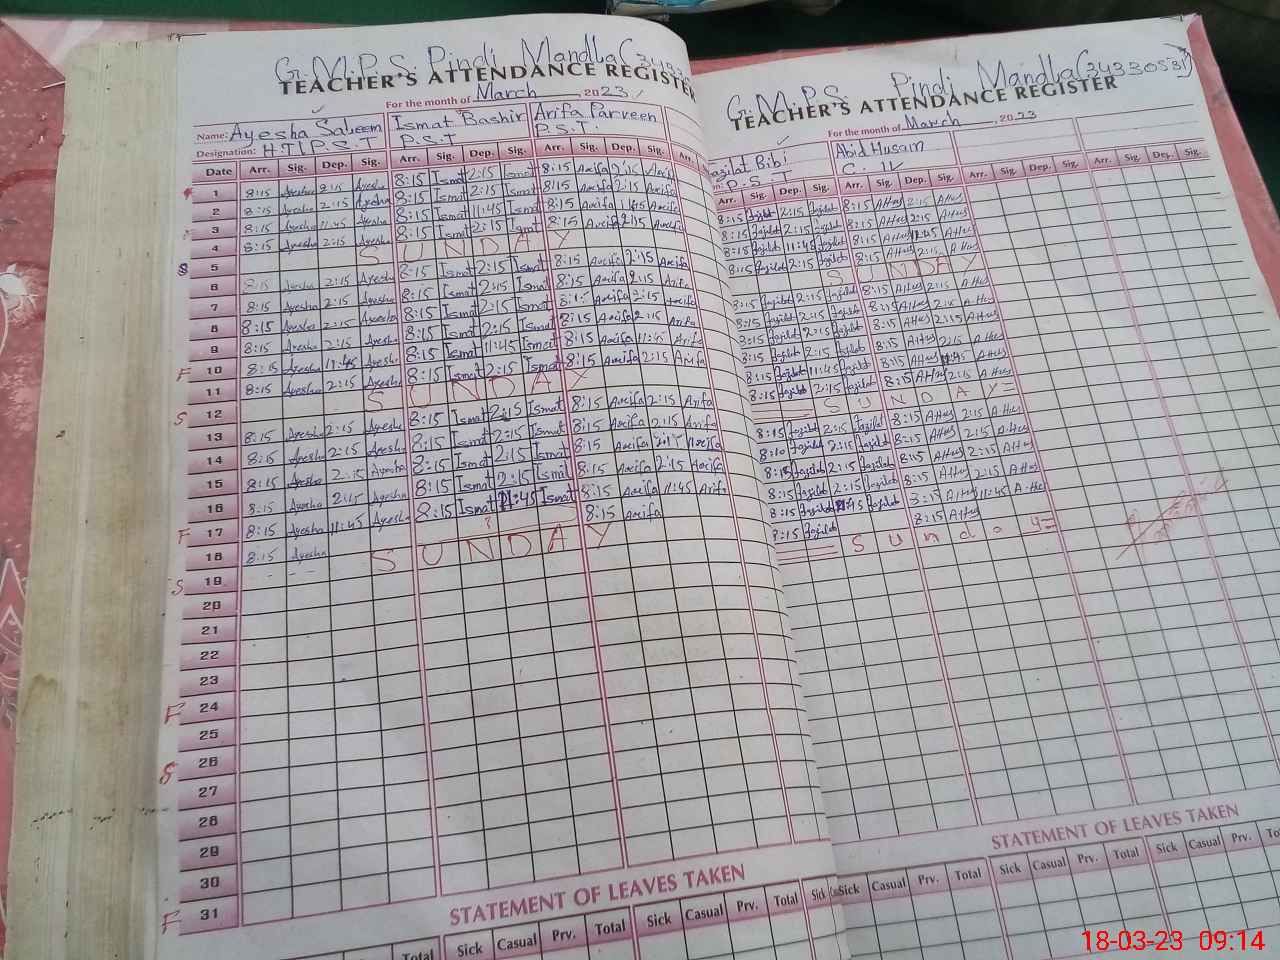 G.M.P.S. Pindi Mandla (3433
TEACHER'S ATTENDANCE REGISTER
For the month of March 2023
Name: Ayesha Saleem Ismat Bashir Arifa Parveen
Designation: H.T/P.S.T P.S.T P.S.T.
Date Arr. Sig. Dep. Sig. Arr. Sig. Dep. Sig. Arr. Sig. Dep. Sig. Arr.
1 8:15 Ayesha 2:15 Ayesha 8:15 Ismat 2:15 Ismat 8:15 Arifa 2:15 Arifa
2 8:15 Ayesha 2:15 Ayesha 8:15 Ismat 2:15 Ismat 8:15 Arifa 2:15 Arifa
3 8:15 Ayesha 11:45 Ayesha 8:15 Ismat 11:45 Ismat 8:15 Arifa 11:45 Arifa
4 8:15 Ayesha 2:15 Ayesha 8:15 Ismat 2:15 Ismat 8:15 Arifa 2:15 Arifa
S 5 SUNDAY
6 8:15 Ayesha 2:15 Ayesha 8:15 Ismat 2:15 Ismat 8:15 Arifa 2:15 Arifa
7 8:15 Ayesha 2:15 Ayesha 8:15 Ismat 2:15 Ismat 8:15 Arifa 2:15 Arifa
8 8:15 Ayesha 2:15 Ayesha 8:15 Ismat 2:15 Ismat 8:15 Arifa 2:15 Arifa
9 8:15 Ayesha 2:15 Ayesha 8:15 Ismat 2:15 Ismat 8:15 Arifa 2:15 Arifa
F 10 8:15 Ayesha 11:45 Ayesha 8:15 Ismat 11:45 Ismat 8:15 Arifa 11:45 Arifa
11 8:15 Ayesha 2:15 Ayesha 8:15 Ismat 2:15 Ismat 8:15 Arifa 2:15 Arifa
S 12 SUNDAY
13 8:15 Ayesha 2:15 Ayesha 8:15 Ismat 2:15 Ismat 8:15 Arifa 2:15 Arifa
14 8:15 Ayesha 2:15 Ayesha 8:15 Ismat 2:15 Ismat 8:15 Arifa 2:15 Arifa
15 8:15 Ayesha 2:15 Ayesha 8:15 Ismat 2:15 Ismat 8:15 Arifa 2:15 Arifa
16 8:15 Ayesha 2:15 Ayesha 8:15 Ismat 2:15 Ismat 8:15 Arifa 2:15 Arifa
F 17 8:15 Ayesha 11:45 Ayesha 8:15 Ismat 11:45 Ismat 8:15 Arifa 11:45 Arifa
18 8:15 Ayesha 8:15 Arifa
S 19 SUNDAY
20
21
22
23
F 24
25
S 26
27
28
29
30
F 31
STATEMENT OF LEAVES TAKEN
Total Sick Casual Prv. Total Sick Casual Prv. Total Sick
G.M.P.S. Pindi Mandla (34330531)
TEACHER'S ATTENDANCE REGISTER
For the month of March 2023
Bibi Abid Husam
P.S.T
Arr. Sig. Dep. Sig. Arr. Sig. Dep. Sig. Arr. Sig. Dep. Sig. Arr. Sig. Dep. Sig.
8:15 Fazilat 2:15 Fazilat 8:15 AHus 2:15 AHus
8:15 Fazilat 2:15 Fazilat 8:15 AHus 2:15 AHus
8:15 Fazilat 11:45 Fazilat 8:15 AHus 11:45 AHus
8:15 Fazilat 2:15 Fazilat 8:15 AHus 2:15 AHus
SUNDAY
8:15 Fazilat 2:15 Fazilat 8:15 AHus 2:15 AHus
8:15 Fazilat 2:15 Fazilat 8:15 AHus 2:15 AHus
8:15 Fazilat 2:15 Fazilat 8:15 AHus 2:15 AHus
8:15 Fazilat 2:15 Fazilat 8:15 AHus 2:15 AHus
8:15 Fazilat 8:15 AHus 11:45 AHus
8:15 Fazilat 2:15 Fazilat 8:15 AHus 2:15 AHus
SUNDAY
8:15 Fazilat 2:15 Fazilat 8:15 AHus 2:15 AHus
8:10 Fazilat 2:15 Fazilat 8:15 AHus 2:15 AHus
8:15 Fazilat 2:15 Fazilat 8:15 AHus 2:15 AHus
8:15 Fazilat 2:15 Fazilat 8:15 AHus 2:15 AHus
8:15 Fazilat 11:45 Fazilat 8:15 AHus 11:45 AHus
8:15 Fazilat 8:15 AHus
Sunday
STATEMENT OF LEAVES TAKEN
Sick Casual Prv. Total Sick Casual Prv. Total Sick Casual Prv.
18-03-23 09:14